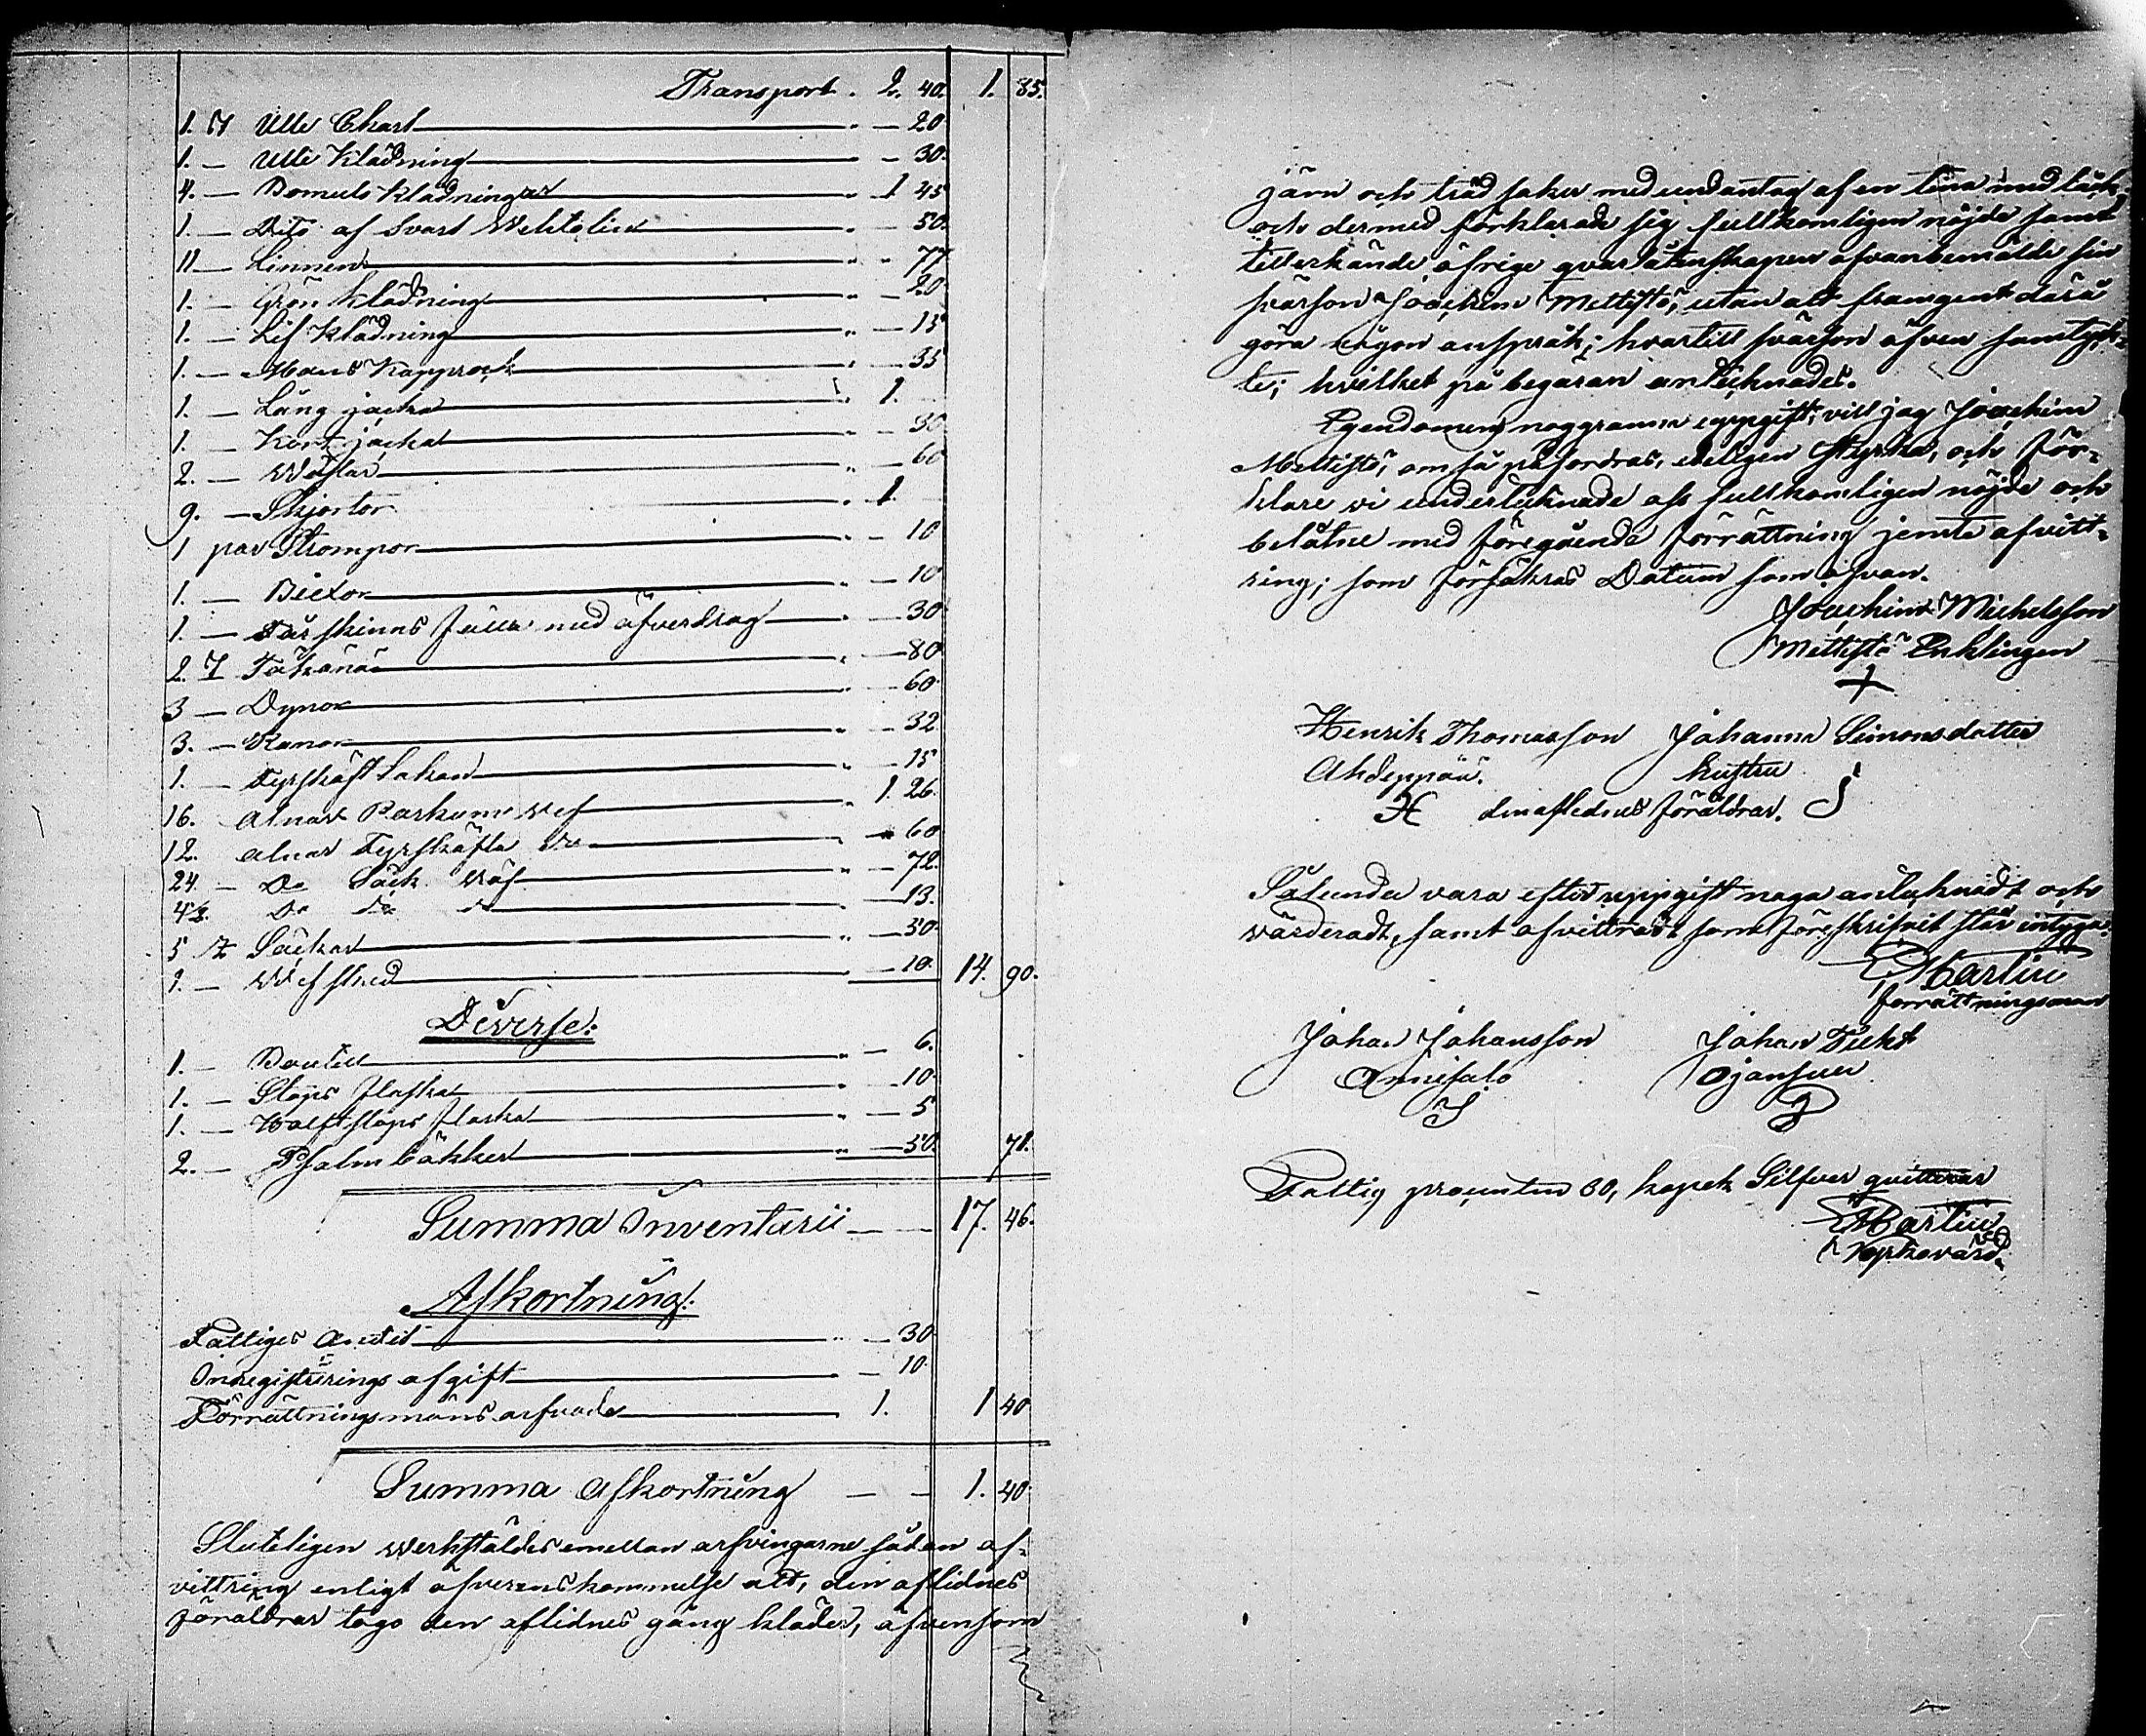 Transport . 2. 40. 1. 85.
1. st Ulle Charl " — 20
1. — Ulle Klädning — 30.
4. — Bomuls klädningar " 1 45
1. — Dito af Svart " — 50.
11 — Linnen " " 77
1. — Grön klädning " — 20
1. — Lif Klädning " — 15
1. — Mans Kapprock " — 35
1. — Lång jacka " 1.
1. — Kort jacka " — 30
2. — Wästar " — 60
9. — Skjortor " 1.
1 par Strumpor " — 10
1. — " — 10
1. — Fårskinns fäll med öfverdrag " — 30
2. st Täkänä " — 80
3 — Dynor " — 60
3. — Ranor " — 32
1. — Fyrskäft Lakan " — 15
16. alnar Parkums wef " 1. 26.
12. alnar Fyrskäfta do " 60
24. — Do Säck Väf " — 72.
4½. Do do do — 13.
5 st Säckar " — 50.
1. — Wefsked — 10. 14. 90.
Diverse:
1. — Boutell " — 6.
1. — Stops flaska " — 10
1. — Halfstops flaska " — 5
2. — Psalmböcker " — 50. 71.
Summa Inventarii — — 17. 46.
Afkortning:
Fattiges andel " — 30
Inregistrerings afgift — 10
Förrättningsmäns arfvode 1. 1 40
Summa afkortning — — 1. 40
Sluteligen werkställdes emellan arfvingarne sådan af-
vittring enligt öfverenskommelse att, den aflidnes
föräldrar togo den aflidnes gång kläder, äfvensom
järn och träd saker med undantag af en tina med låck
och dermed förklarade sig fullkomligen nöjde samt
tillerkände öfrige qvarlåtenskapen ofvanbemälde sin
svärson Joachim Mettistö, utan att framgent därå
göra någon anspråk; hvartill svärson äfven samtyck-
te; hvilket på begäran antecknades.
Egendomens noggranna uppgift, vill jag Joachim
Mettistö, om så påfordras, edeligen styrka, och för-
klare vi undertecknade oss fullkomligen nöjde och
belåtne med föregående förrättning jemte afvitt-
ring; som försäkras Datum som ofvan.
Joachim Michelsson
Mettistö Enklingen
+
Henrik Thomasson Johanna Simonsdotter
Ahdeppää. hustru
H den aflednes föräldrar. S
Sålunda vara efter uppgift noga antecknadt och
värderadt, samt afvittradt som föreskrifvit står intygar.
Martin
förrättningsman
Johan Johansson Johan Tukt
Annisalo Ojansuu
Fattig procenten 30, kopek Silfver qvitteras
Martin
Kyrkovärd.